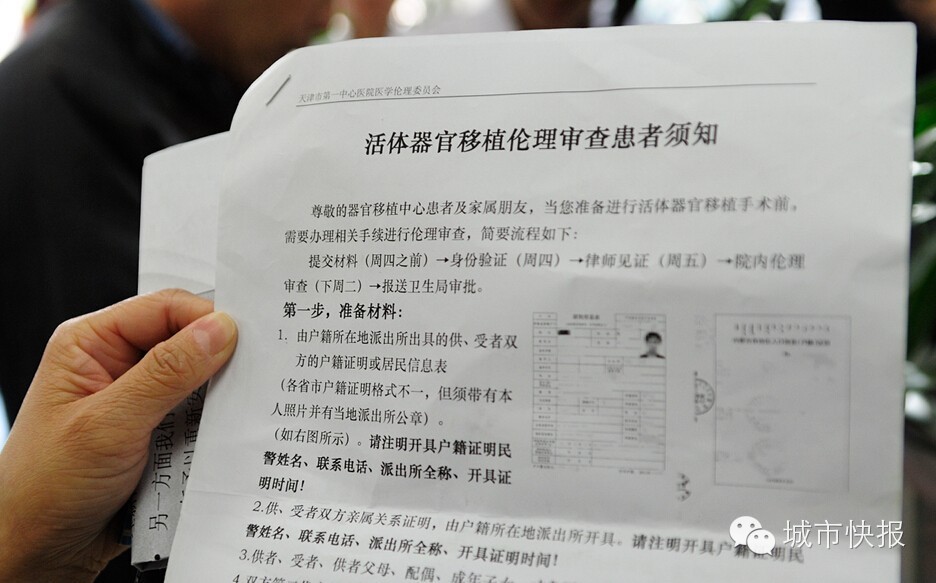 天津市第一中心医院医学伦理委员会
活体器官移植伦理审查患者须知
尊敬的器官移植中心患者及家属朋友，当您准备进行活体器官移植手术前，
需要办理相关手续进行伦理审查，简要流程如下：
提交材料（周四之前）→身份验证（周四）→律师见证（周五）→院内伦理
审查（下周二）→报送卫生局审批。
第一步，准备材料：
1. 由户籍所在地派出所出具的供、受者双
方的户籍证明或居民信息表
（各省市户籍证明格式不一，但须带有本
人照片并有当地派出所公章）。
（如右图所示）。请注明开具户籍证明民
警姓名、联系电话、派出所全称、开具证
明时间！
2.供、受者双方亲属关系证明，由户籍所在地派出所开具。请注明开具户籍证明民
警姓名、联系电话、派出所全称、开具证明时间！
3.供者、受者、供者父母、配偶、成年子女
4.双方第
另一方面我们
予以重新安
城市快报